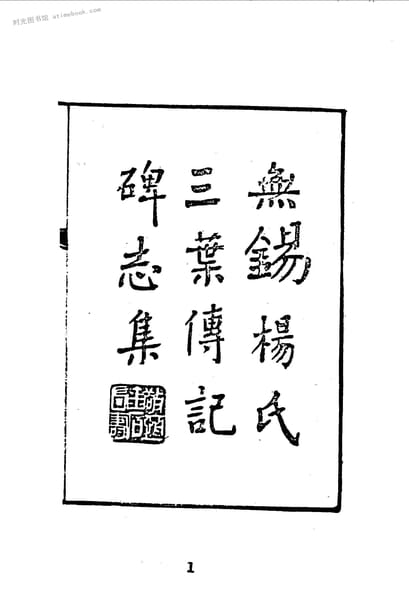 时光图书馆 atimebook.com
無錫楊氏
三葉傳記
碑志集
1